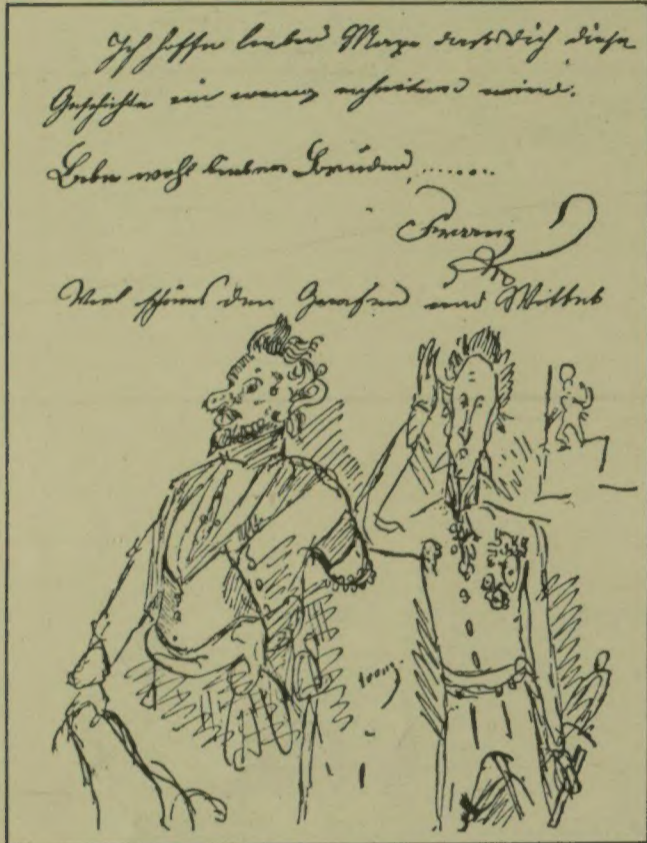 Ich hoffe lieber Maxe dass Dich diese
Geschichte ein wenig erheitern wird.
Lebe wohl lieber Bruder .......
Franz
Viel schönes den Grafen und Mittet